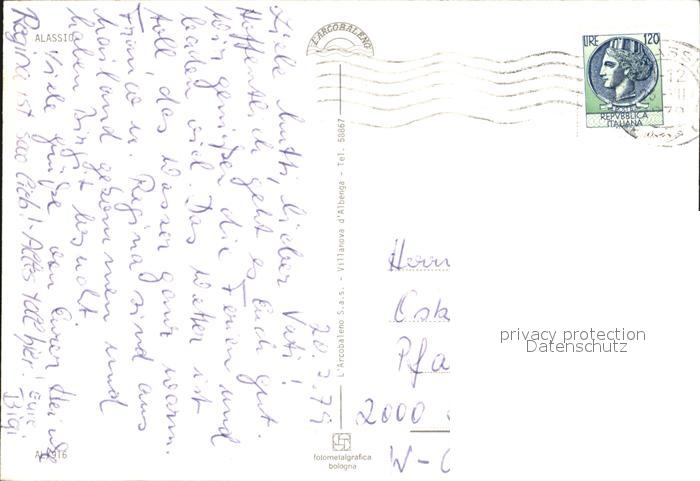 ALASSIO
L'ARCOBALENO
LIRE 120
REPVBBLICA
ITALIANA
20.7.79
Liebe Mutti, lieber Vati!
Hoffentlich geht es Euch gut.
Wir genießen die Ferien und
baden viel. Das Wetter ist
toll das Wasser ganz warm.
u. Regina sind aus
Mailand gekommen und
haben besucht
Viele Grüße von Eurer
Regina ist sao lieb! Alles toll hier! Eure
L'Arcobaleno S.a.s. - Villanova d'Albenga - Tel. 58867
Herrn
Osk
Pfa
2000
W-
privacy protection
Datenschutz
fotometalgrafica
bologna